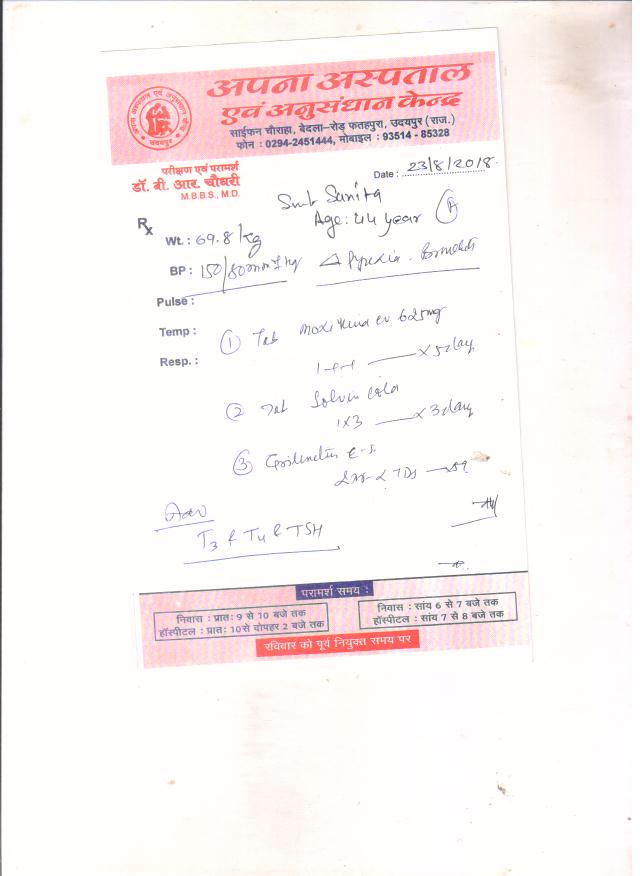 अपना अस्पताल
एवं अनुसंधान केन्द्र
साईफन चौराहा, बेदला–रोड़ फतहपुरा, उदयपुर (राज.)
फोन : 0294-2451444, मोबाइल : 93514 - 85328
उदयपुर
परीक्षण एवं परामर्श
डॉ. बी. आर. चौधरी
M.B.B.S., M.D.
Date : 23/8/2018
Smt Sunita
Age: 44 year
Rx
Wt. : 69.8/kg
BP : 150/80mm Hg
△ Pyrexia
Pulse :
Temp :
Resp. :
① Tab 625mg
x 5 day
② Tab Solvin cold
1x3 x 3 day
③ E-S.
T3 & T4 & TSH
परामर्श समय :
निवास : प्रातः 9 से 10 बजे तक
हॉस्पीटल : प्रातः 10 से दोपहर 2 बजे तक
निवास : सांय 6 से 7 बजे तक
हॉस्पीटल : सांय 7 से 8 बजे तक
रविवार को पूर्व नियुक्त समय पर